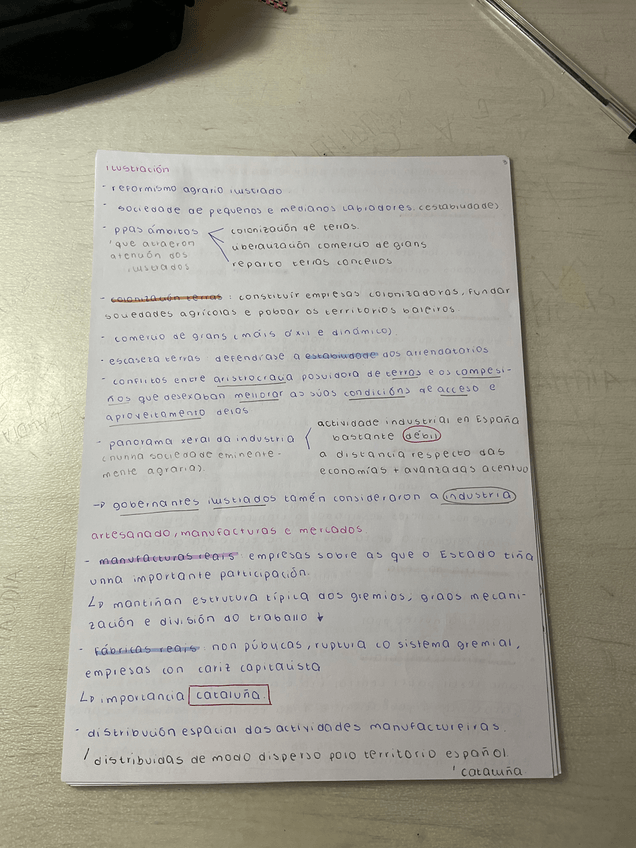 ilustración
- reformismo agrario ilustrado
- sociedade de pequenos e medianos labradores (estabilidade)
- ppas ámbitos
'que atraeron
atención dos
ilustrados
colonización de terras.
liberalización comercio de grans
reparto terras concellos
- colonización terras: constituír empresas colonizadoras, fundar
sociedades agrícolas e poboar os territorios baleiros
- comercio de grans (máis áxil e dinámico)
- escaseza terras: defendíase a estabilidade dos arrendatarios
- conflitos entre aristrocracia posuidora de terras e os campesi-
ños que desexaban mellorar as súas condicións de acceso e
aproveitamento delas
- panorama xeral da industria
(nunha sociedade eminente-
mente agraria).
actividade industrial en España
bastante débil
a distancia respecto das
economías + avanzadas acentuo
→ gobernantes ilustrados tamén consideraron a industria
artesanado, manufacturas e mercados.
- manufacturas reais: empresas sobre as que o Estado tiña
unha importante participación.
↳ mantiñan estrutura típica dos gremios, graos mecani-
zación e división do traballo ↓
- fábricas reais: non públicas, ruptura co sistema gremial,
empresas con cariz capitalista
↳ importancia cataluña.
- distribución espacial das actividades manufactureiras.
/ distribuidas de modo disperso polo territorio español
' cataluña